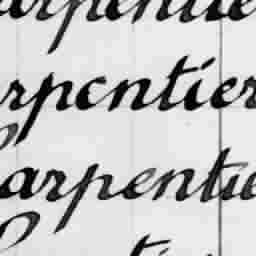 arpentie
rpentier
arpentie